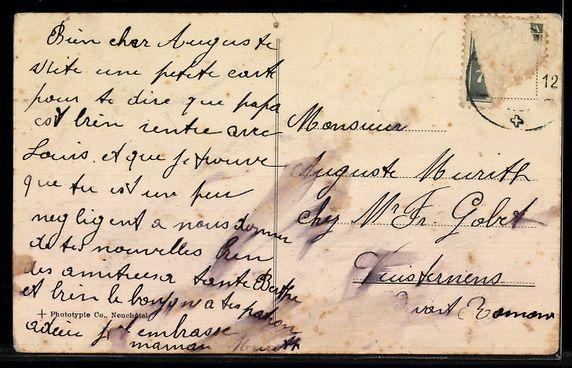 Bien cher Auguste
vite une petite carte
pour te dire que papa
est bien rentre avec
Louis. et que je trouve
que tu est un peu
negligent a nous donner
de tes nouvelles bien
des amitiees a tante Berthe
et bien le bonjour a tes patron
adieu je t embrasse
maman Murith
+ Phototypie Co., Neuchâtel
7
12
Monsieur
Auguste Murith
chez Mr Fr. Gobet
Vuisternens
devant Romont